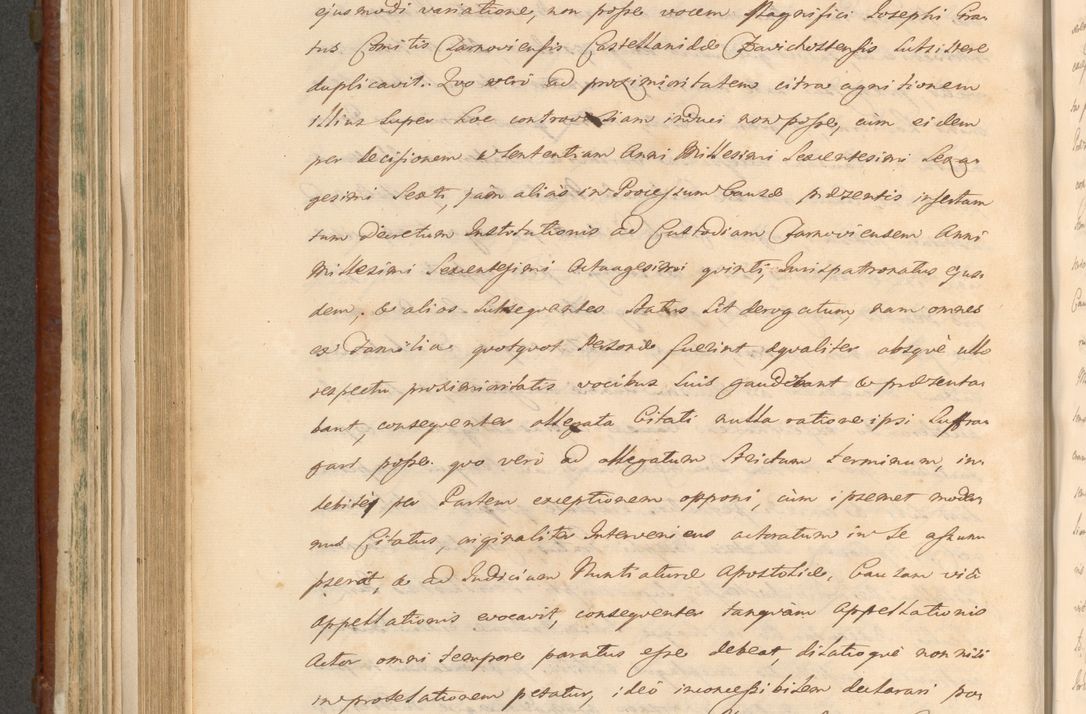 ejusmodi variatione, non posse vocem Magnifici Josephi Gra-
tus Comitis Tarnoviensis Castellanidæ Zavichostensis subsistere
duplicavit. Quo vero ad proximioritatem citra agnitionem
illius super hoc controversiam induci non posse, cum eidem
per decisionem & sententiam Anni Millesimi Sexentesimi Sexa-
gesimi Sexti, jam alias in Processum Causæ præsentis insertam
tum Decretum Institutionis ad Custodiam Tarnoviensem Anni
Millesimi Sexentesimi Octuagesimi quinti, Jurispatronatus ejus-
dem, & alios subsequentes status sit derogatum, nam omnes
ex Familia quotquot Personæ fuerint æqualiter absque ullo
respectu proximioritatis vocibus suis gaudebant & præsenta-
bant, consequenter allegata Citati nulla ratione ipsi suffra-
gari posse. quo vero ad allegatum strictum terminum, in-
debite per Partem exceptionem opponi, cum ipsemet moder-
nus Citatus, originaliter Interveniens actoratum in se assum-
pserat, & ad Judicium Nuntiaturæ Apostolicæ, Causam viâ
appellationis evocavit, consequenter tanquam Appellationis
Actor omni tempore paratus esse debeat, dilatioque non nisi
in protelationem petatur, ideo inconcessibilem declarari pos-